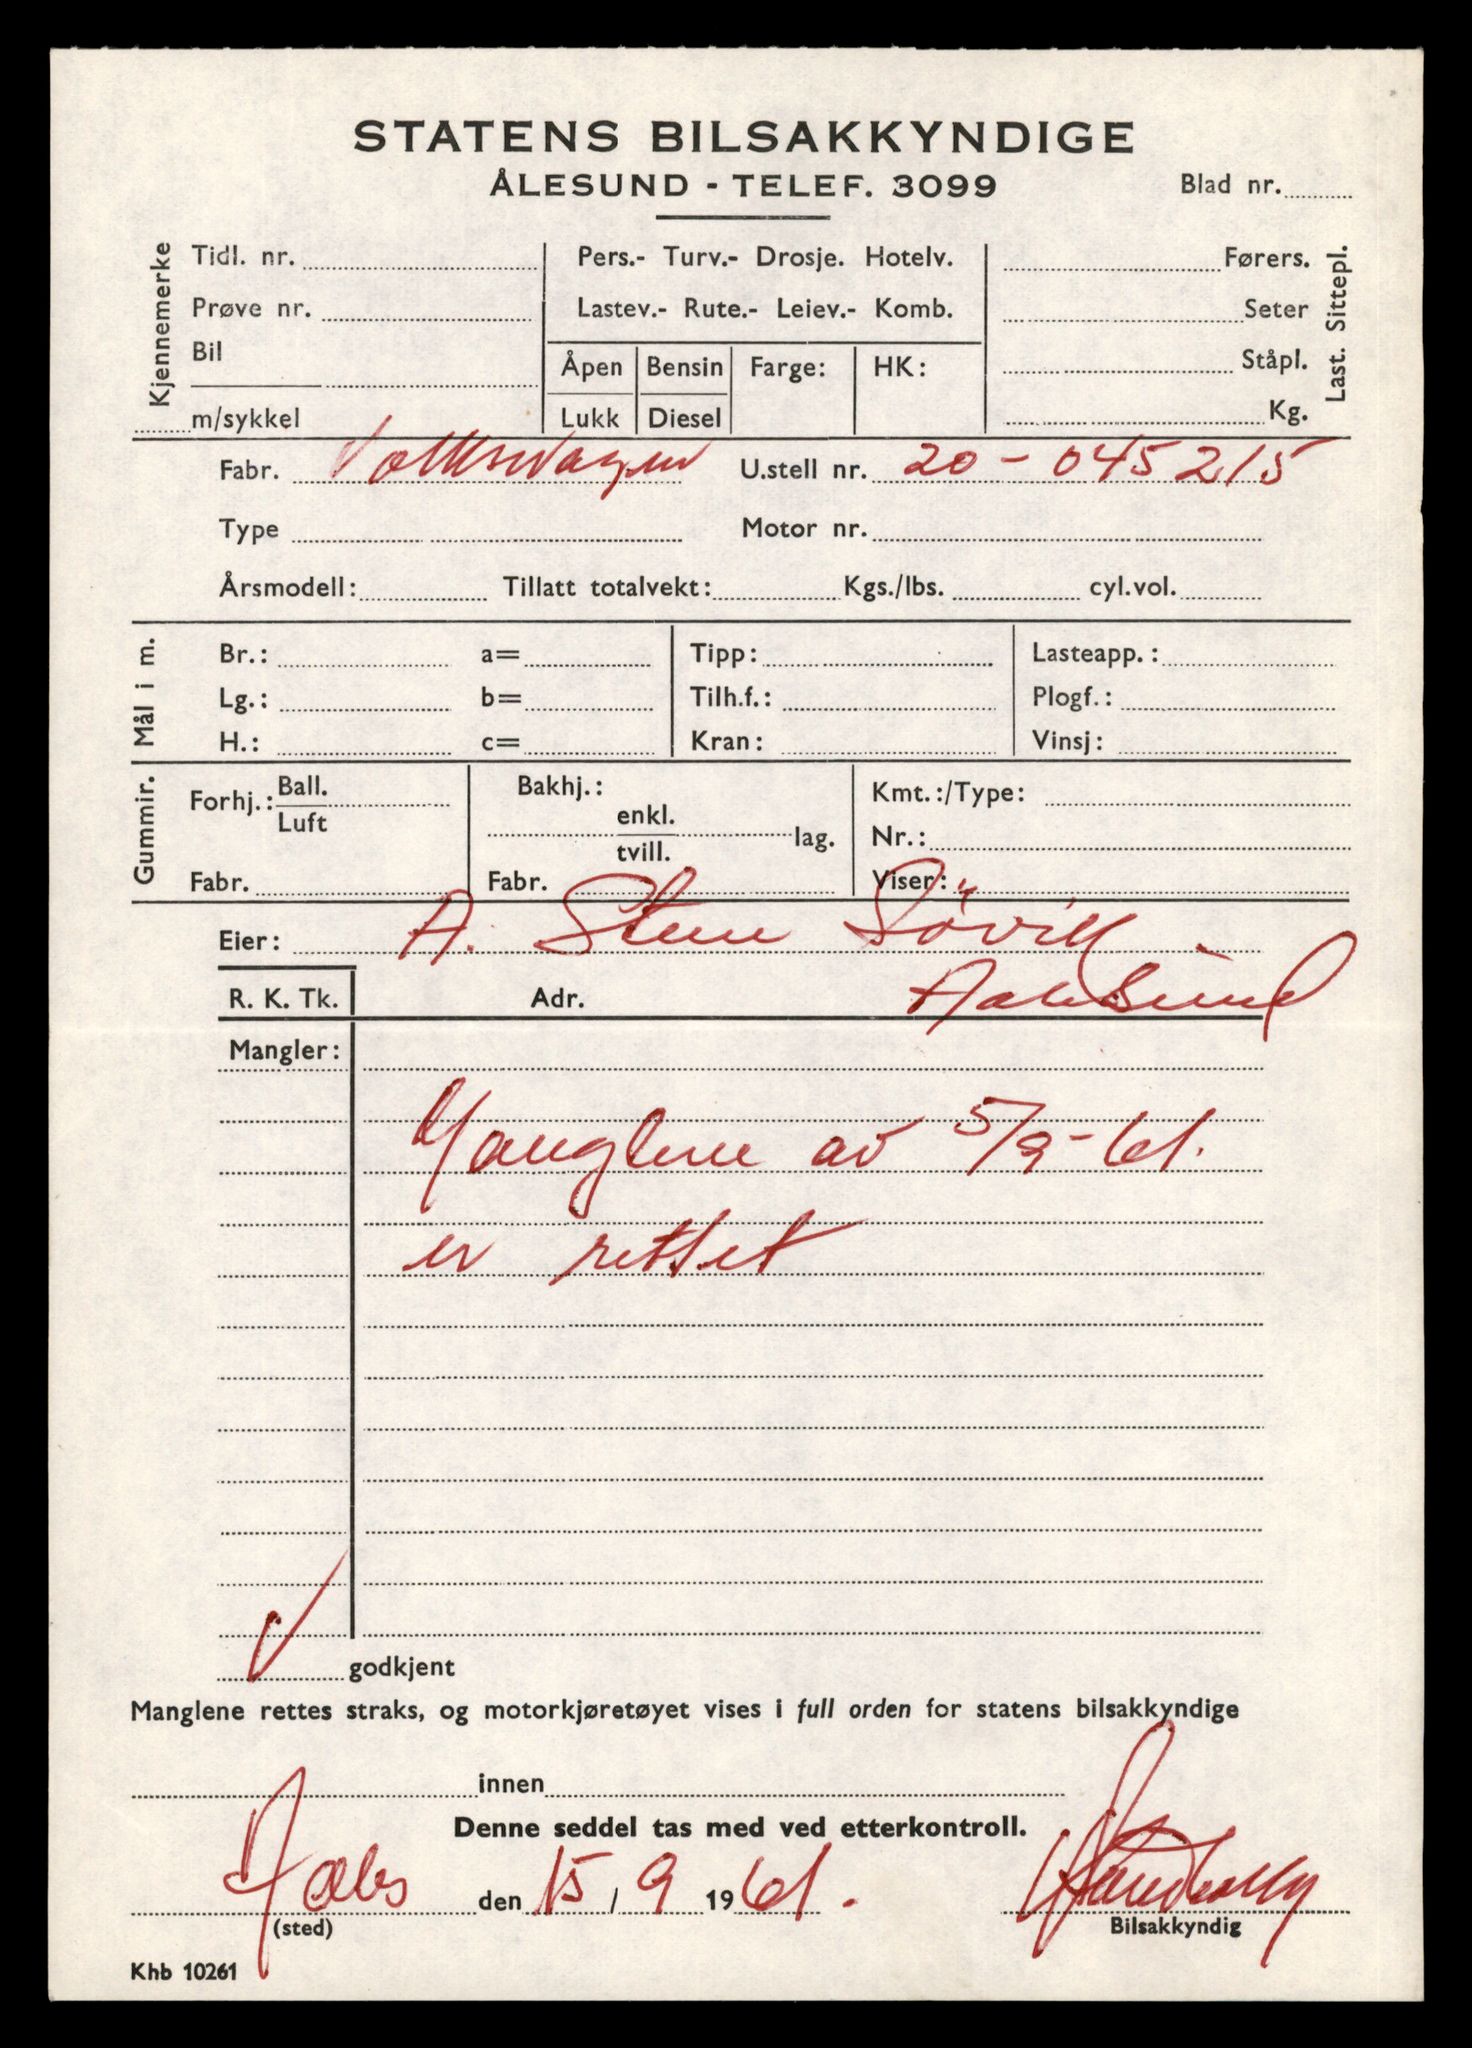 STATENS BILSAKKYNDIGE
ÅLESUND - TELEF. 3099
Blad nr.
Kjennemerke
Tidl. nr.
Prøve nr.
Bil
m/sykkel
Pers.- Turv.- Drosje. Hotelv.
Lastev.- Rute.- Leiev.- Komb.
Åpen Bensin Farge: HK:
Lukk Diesel
Førers.
Seter
Ståpl.
Kg.
Last. Sittepl.
Fabr. Volkswagen U.stell nr. 20-045215
Type Motor nr.
Årsmodell: Tillatt totalvekt: Kgs./lbs. cyl.vol.
Mål i m.
Br.: a= Tipp: Lasteapp.:
Lg.: b= Tilh.f.: Plogf.:
H.: c= Kran: Vinsj:
Gummir.
Forhj.: Ball.
Luft
Fabr.
Bakhj.:
enkl.
tvill. lag.
Fabr.
Kmt.:/Type:
Nr.:
Viser:
Eier: A. Steen
R. K. Tk. Adr. Aalesund
Mangler:
Manglene av 5/9-61.
er rettet
√ godkjent
Manglene rettes straks, og motorkjøretøyet vises i full orden for statens bilsakkyndige
innen
Denne seddel tas med ved etterkontroll.
Aales den 15/9 1961.
(sted) Bilsakkyndig
Khb 10261